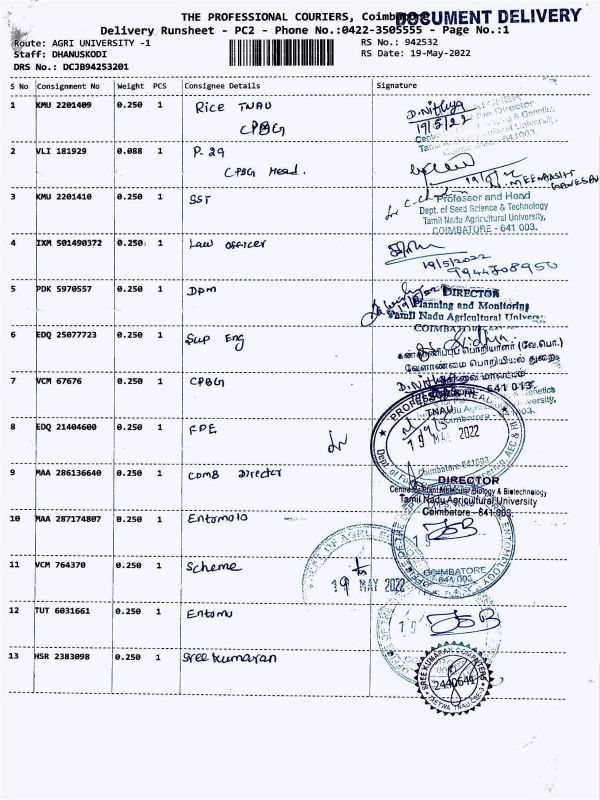 THE PROFESSIONAL COURIERS, Coimbatore
DOCUMENT DELIVERY
Delivery Runsheet - PC2 - Phone No.:0422-3505555 - Page No.:1
Route: AGRI UNIVERSITY -1
RS No.: 942532
Staff: DHANUSKODI
RS Date: 19-May-2022
DRS No.: DCJB94253201
S No Consignment No Weight PCS Consignee Details Signature
1 KMU 2201409 0.250 1 Rice TNAU
CPBG
D. Nithya
19/5/22
641003.
2 VLI 181929 0.088 1 P-29
CPBG Head.
3 KMU 2201410 0.250 1 SST
Professor and Head
Dept. of Seed Science & Technology
Tamil Nadu Agricultural University,
COIMBATORE - 641 003.
4 IXM 501490372 0.250 1 Law officer
19/5/2022
9944708950
5 PDK 5970557 0.250 1 DPM
DIRECTOR
Planning and Monitoring
Tamil Nadu Agricultural Univers
COIMBATOR
6 EDQ 25077723 0.250 1 Sup Eng
கண்காணிப்பு பொறியாளர் (வே.பொ.)
வேளாண்மை பொறியியல் துறை
7 VCM 67676 0.250 1 CPBG
D. Nithya
641 013.
8 EDQ 21404600 0.250 1 FPE
PROFESSOR & HEAD
TNAU
19 MAY 2022
Coimbatore-641003
9 MAA 286136640 0.250 1 CPMB Director
DIRECTOR
Centre for Plant Molecular Biology & Biotechnology
Tamil Nadu Agricultural University
Coimbatore - 641 003
10 MAA 287174807 0.250 1 Entomolo
COIMBATORE
641 003.
11 VCM 764370 0.250 1 Scheme
19 MAY 2022
12 TUT 6031661 0.250 1 Entomo
19
13 HSR 2383098 0.250 1 Sree Kumaran
SREE KUMARAN COMPUTERS
2440641